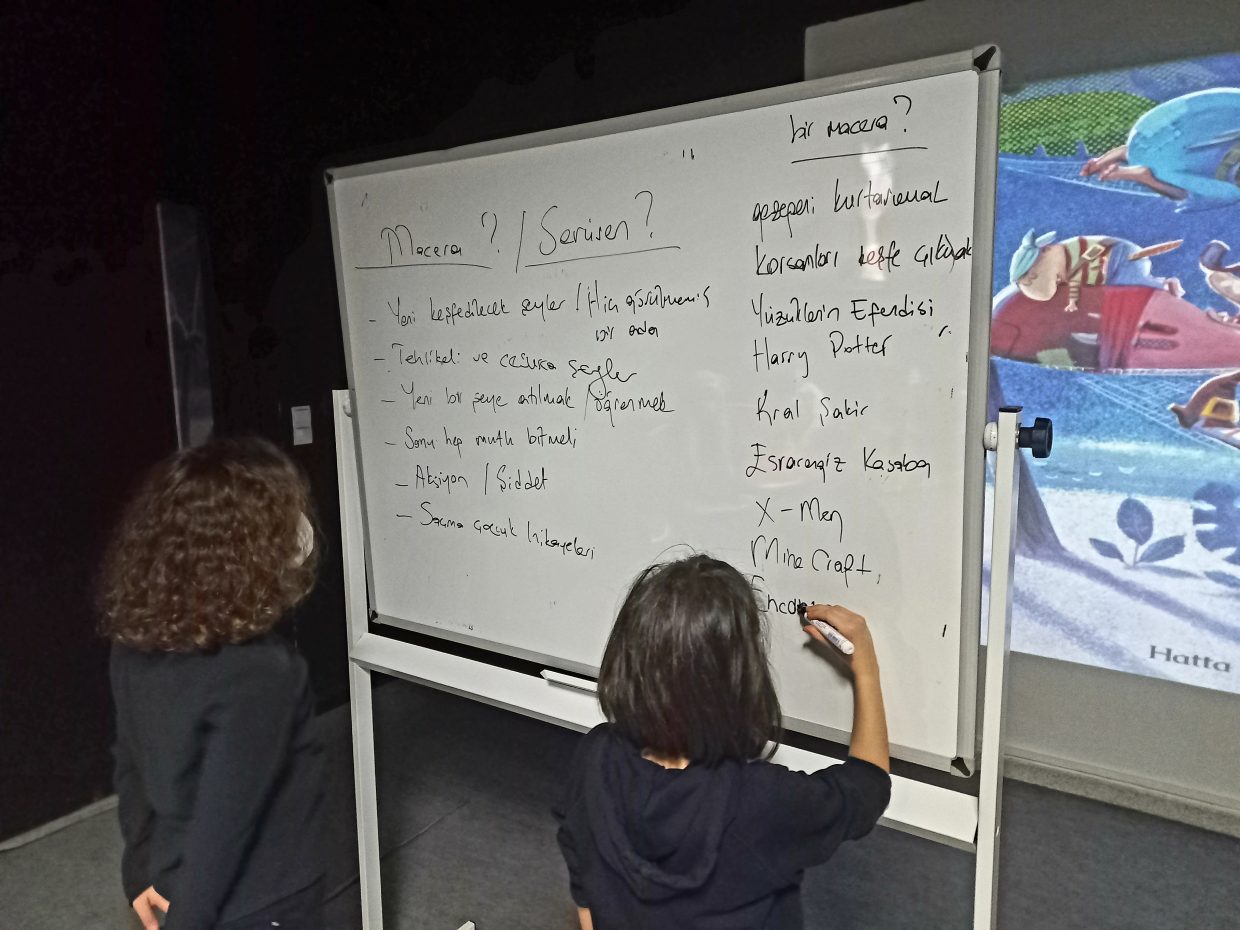 Macera ? / Serüven ?
- Yeni keşfedilecek şeyler / Hiç görülmemiş
bir
- Tehlikeli ve şeyler
- Yeni bir şeye atılmak / öğrenmek
- Sonu hep mutlu bitmeli
- Aksiyon / Şiddet
- Saçma çocuk hikayeleri
bir macera?
gezegeni kurtarmak
korsanları keşfe çıkmak
Yüzüklerin Efendisi
Harry Potter
Kral Şakir
Esrarengiz Kasaba
X-Men
MineCraft,
Hatta